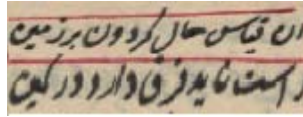 ان قیاس حال گردون بر زمین
راست ناید فرق دارد در کین